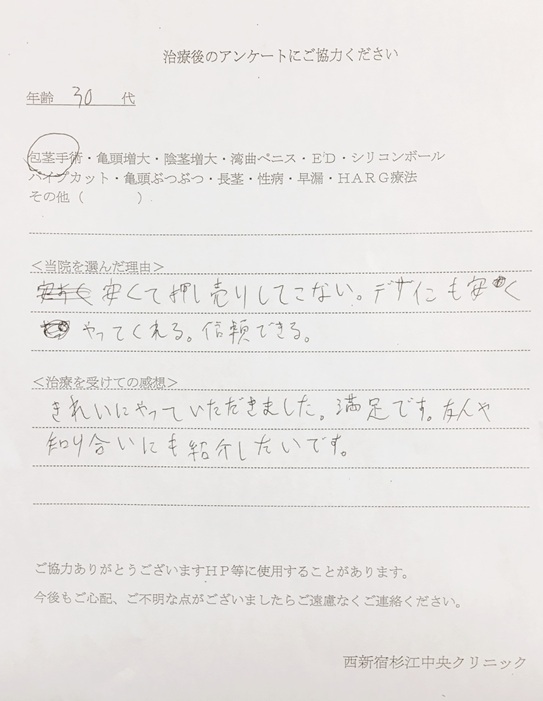 治療後のアンケートにご協力ください
年齢 30 代
包茎手術・亀頭増大・陰茎増大・湾曲ペニス・ED・シリコンボール
パイプカット・亀頭ぶつぶつ・長茎・性病・早漏・HARG療法
その他（　　　　）
＜当院を選んだ理由＞
安くて押し売りしてこない。デザインも安く
やってくれる。信頼できる。
＜治療を受けての感想＞
きれいにやっていただきました。満足です。友人や
知り合いにも紹介したいです。
ご協力ありがとうございますHP等に使用することがあります。
今後もご心配、ご不明な点がございましたらご遠慮なくご連絡ください。
西新宿杉江中央クリニック